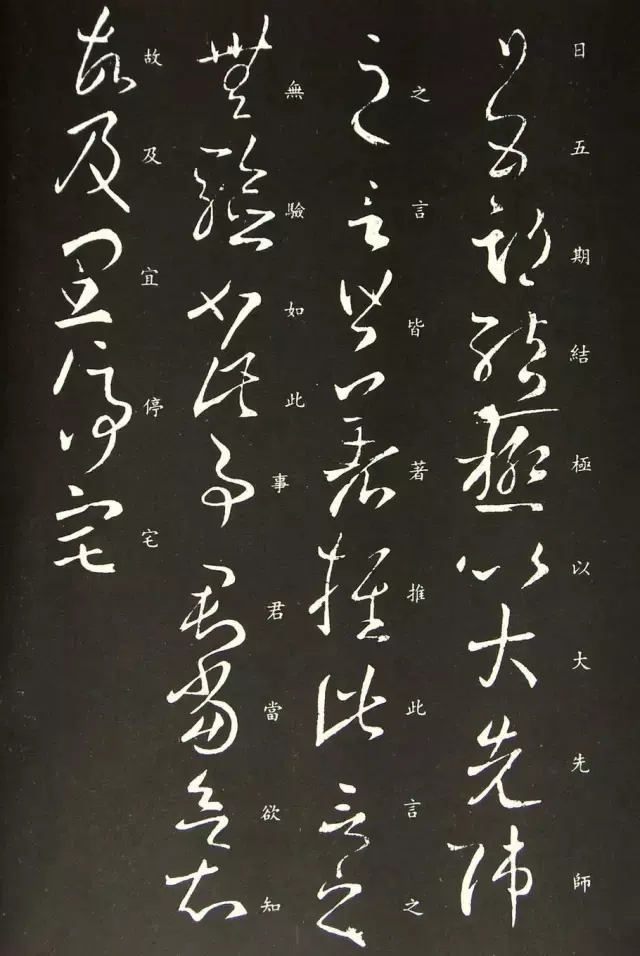 日五期結極以大先師
之言皆著推此言之
無驗如此事君當欲知
故及宜停宅